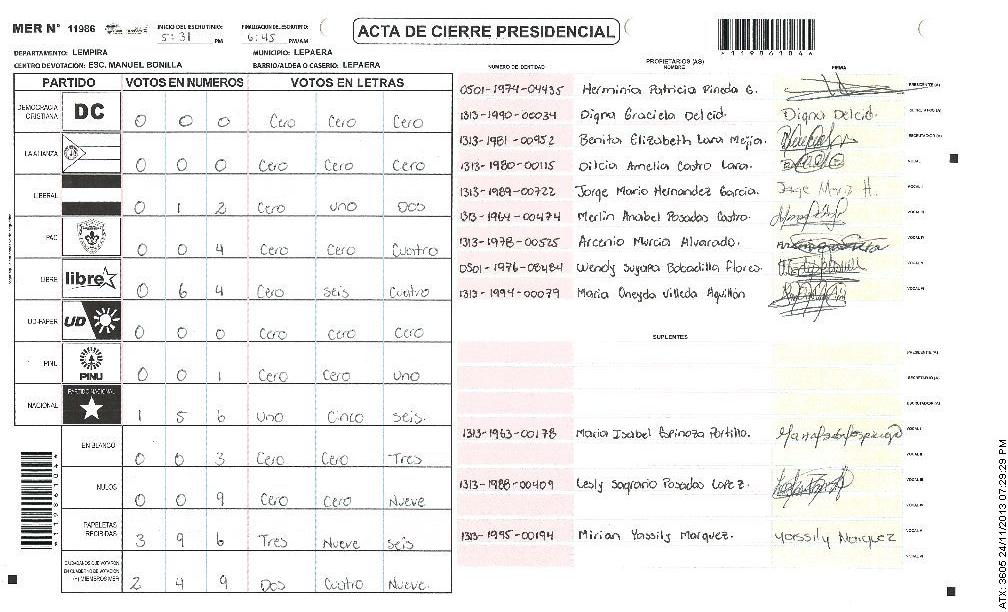 MER Nº 11986 INICIO DEL ESCRUTINIO: 5:31 PM FINALIZACION DEL ESCRUTINIO: 6:45 PM/AM
ACTA DE CIERRE PRESIDENCIAL
DEPARTAMENTO: LEMPIRA MUNICIPIO: LEPAERA
CENTRO DE VOTACION: ESC. MANUEL BONILLA BARRIO/ALDEA O CASERIO: LEPAERA
PARTIDO VOTOS EN NUMEROS VOTOS EN LETRAS
DEMOCRACIA CRISTIANA DC 0 0 0 Cero Cero Cero
LA ALIANZA 0 0 0 Cero Cero Cero
LIBERAL 0 1 2 Cero uno Dos
PAC 0 0 4 Cero Cero Cuatro
LIBRE libre 0 6 4 Cero seis Cuatro
UD-FAPER UD 0 0 0 Cero Cero Cero
PINU PINU 0 0 1 Cero Cero uno
NACIONAL PARTIDO NACIONAL 1 5 6 Uno Cinco seis.
EN BLANCO 0 0 3 Cero Cero Tres
NULOS 0 0 9 Cero Cero Nueve
PAPELETAS RECIBIDAS 3 9 6 Tres Nueve seis
CIUDADANOS QUE VOTARON EN CUADERNO DE VOTACION (+) MIEMBROS MER 2 4 9 Dos Cuatro Nueve.
PROPIETARIOS (AS)
NUMERO DE IDENTIDAD NOMBRE FIRMA
0501-1974-04435 Herminia Patricia Pineda G. PRESIDENTE (A)
1313-1990-00034 Digna Graciela Delcid. Digna Delcid. SECRETARIO (A)
1313-1981-00952 Benita Elizabeth Lara Mejia. ESCRUTADOR (A)
1313-1980-00115 Dilcia Amelia Castro Lara. VOCAL I
1313-1989-00722 Jorge Mario Hernandez Garcia. VOCAL II
1313-1964-00474 Merlin Anabel Posadas Castro. VOCAL III
1313-1978-00525 Arcenio Murcia Alvarado. VOCAL IV
0501-1976-08484 Wendy Suyapa Bobadilla Flores. VOCAL V
1313-1994-00079 Maria Oneyda Villeda Aguillon VOCAL VI
SUPLENTES
PRESIDENTE (A)
SECRETARIO (A)
ESCRUTADOR (A)
1313-1963-00178 Maria Isabel Espinoza Portillo. VOCAL I
VOCAL II
1313-1988-00409 Lesly Sagrario Posadas Lopez. VOCAL III
VOCAL IV
1313-1995-00194 Mirian Yassily Marquez. Yassily Marquez VOCAL V
VOCAL VI
ATX: 3605 24/11/2013 07:29:29 PM